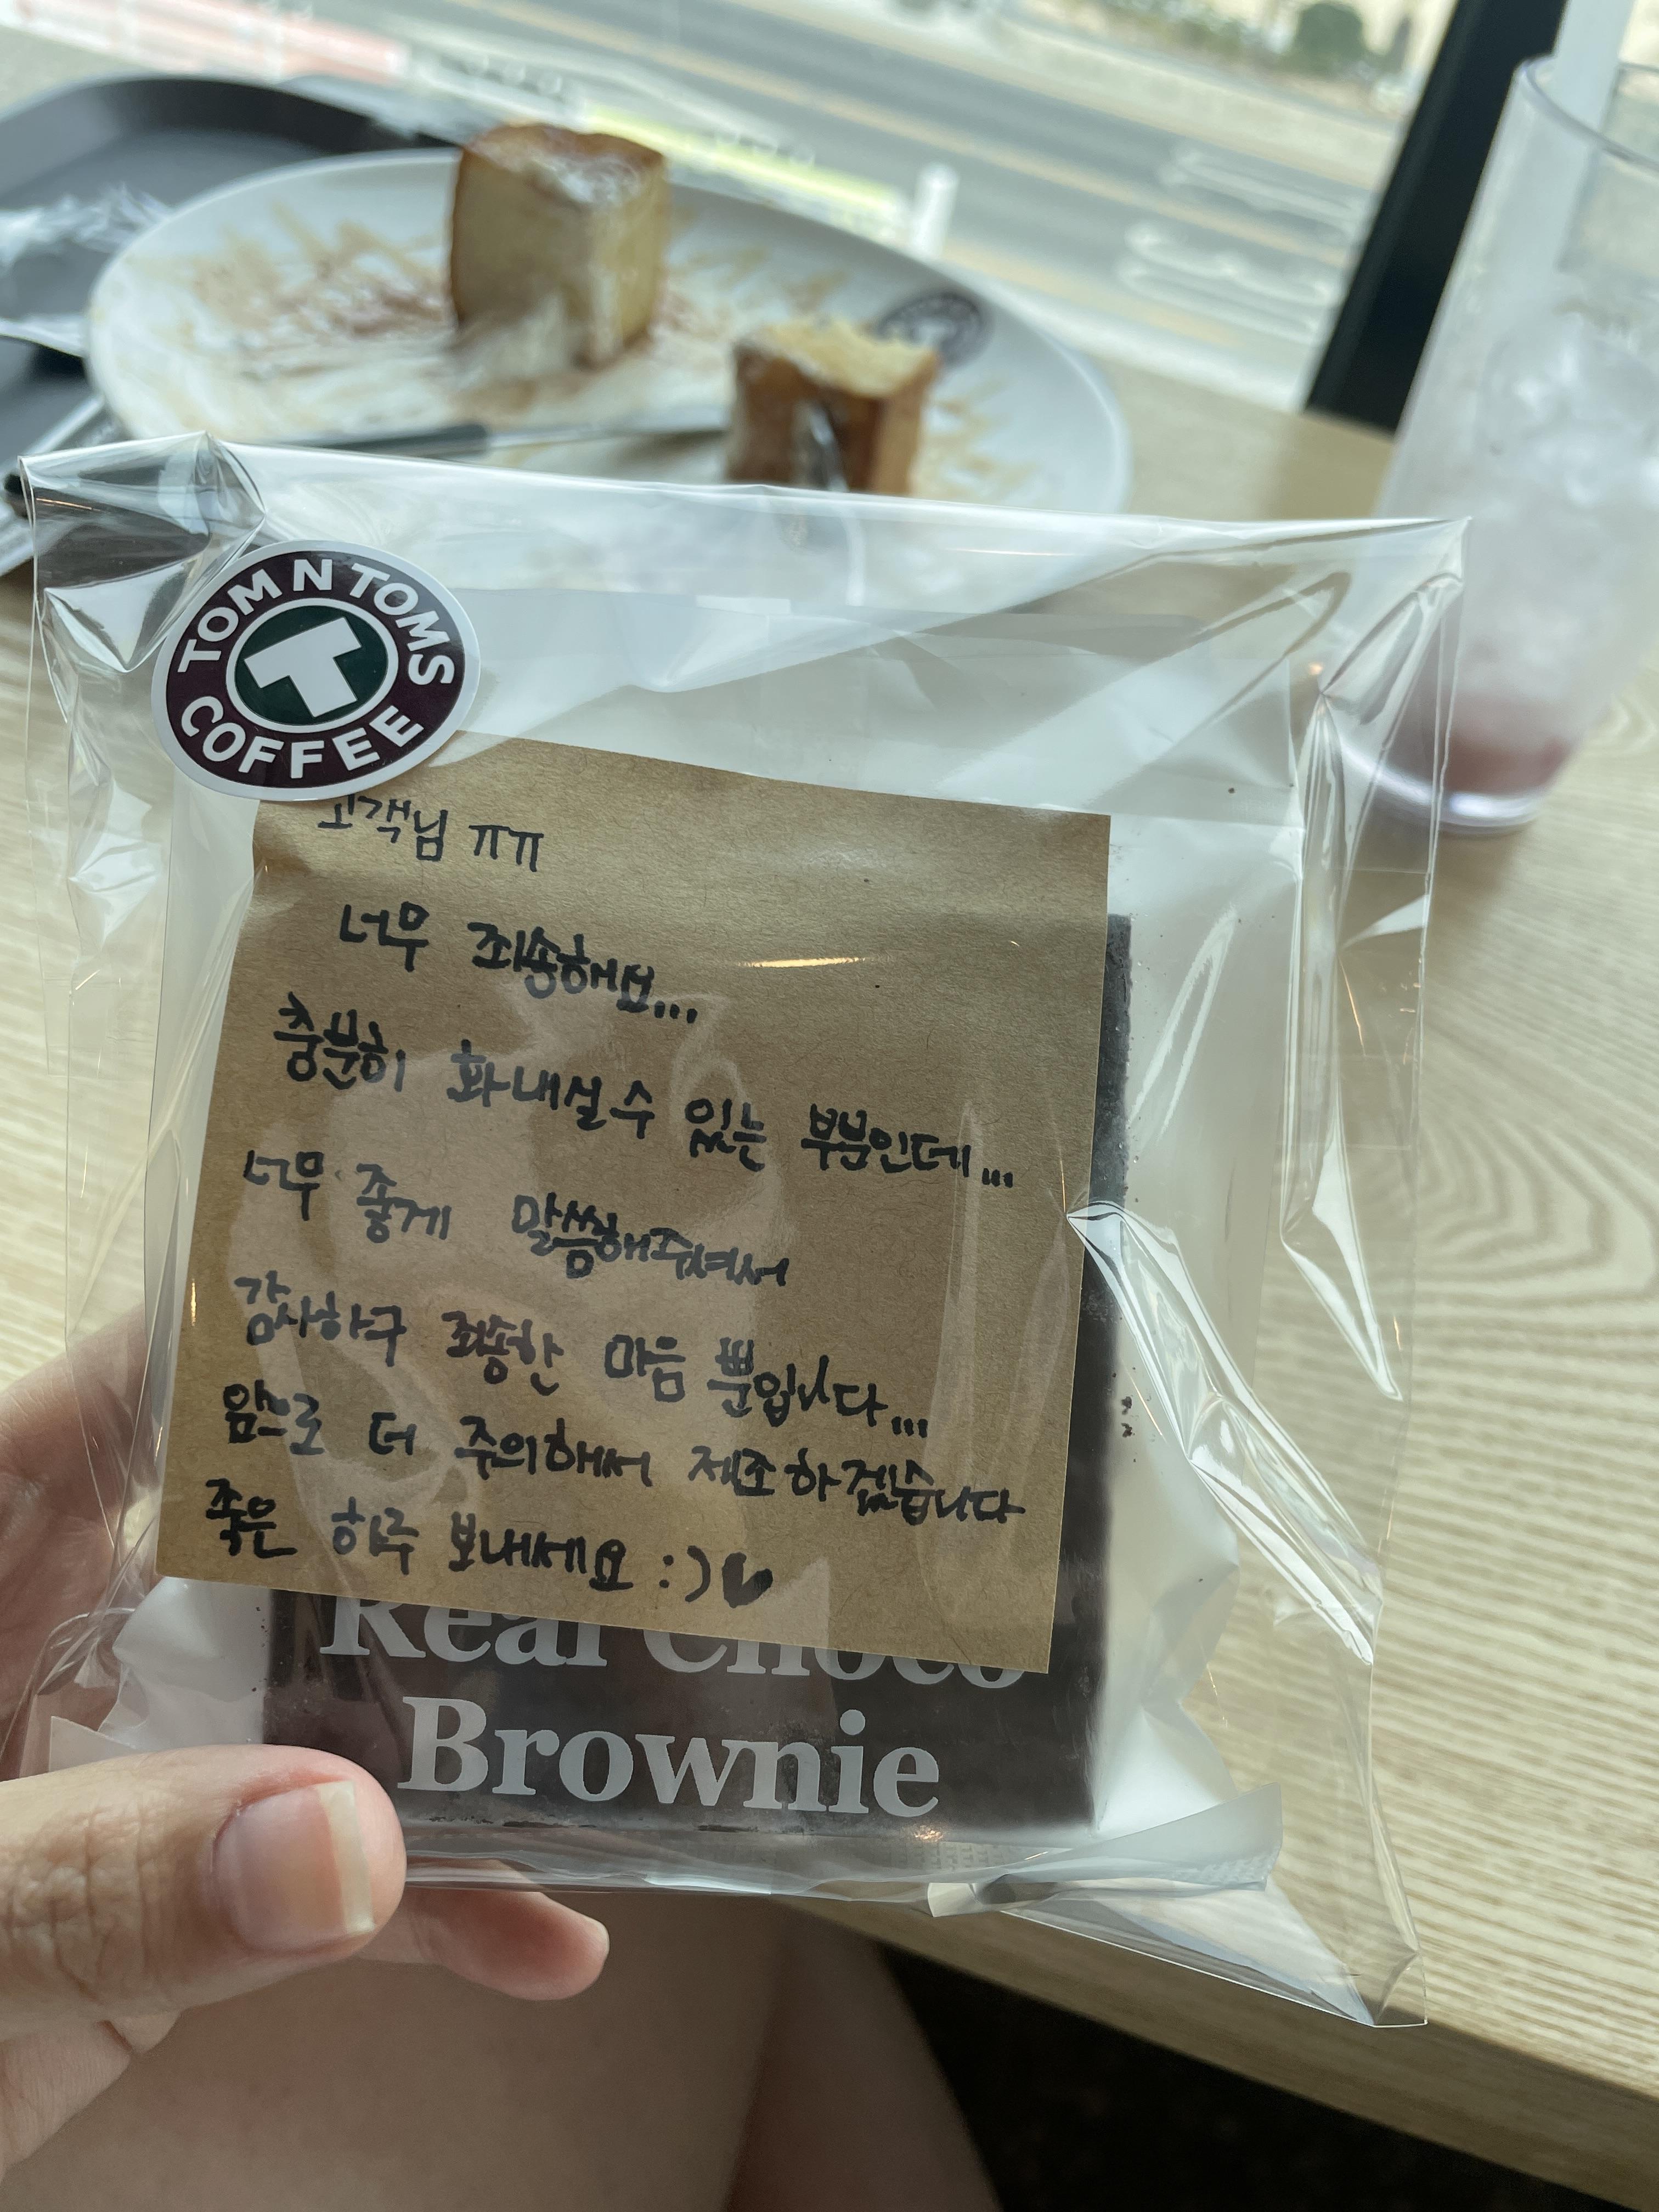 TOM N TOMS
COFFEE
고객님 ㅠㅠ
너무 죄송해요...
충분히 화내실수 있는 부분인데...
너무 좋게 말씀해주셔서
감사하구 죄송한 마음 뿐입니다...
앞으로 더 주의해서 제조하겠습니다
좋은 하루 보내세요 :)♥
Real Choco
Brownie